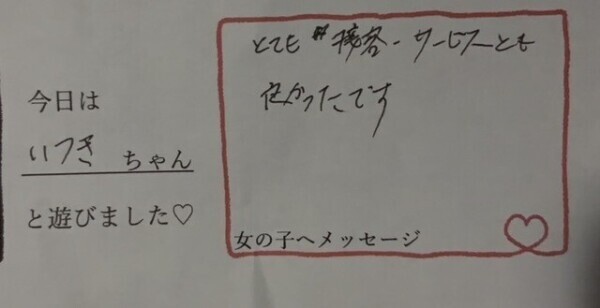 今日は
いつき ちゃん
と遊びました♡
とても 接客・サービスとも
良かったです
女の子へメッセージ